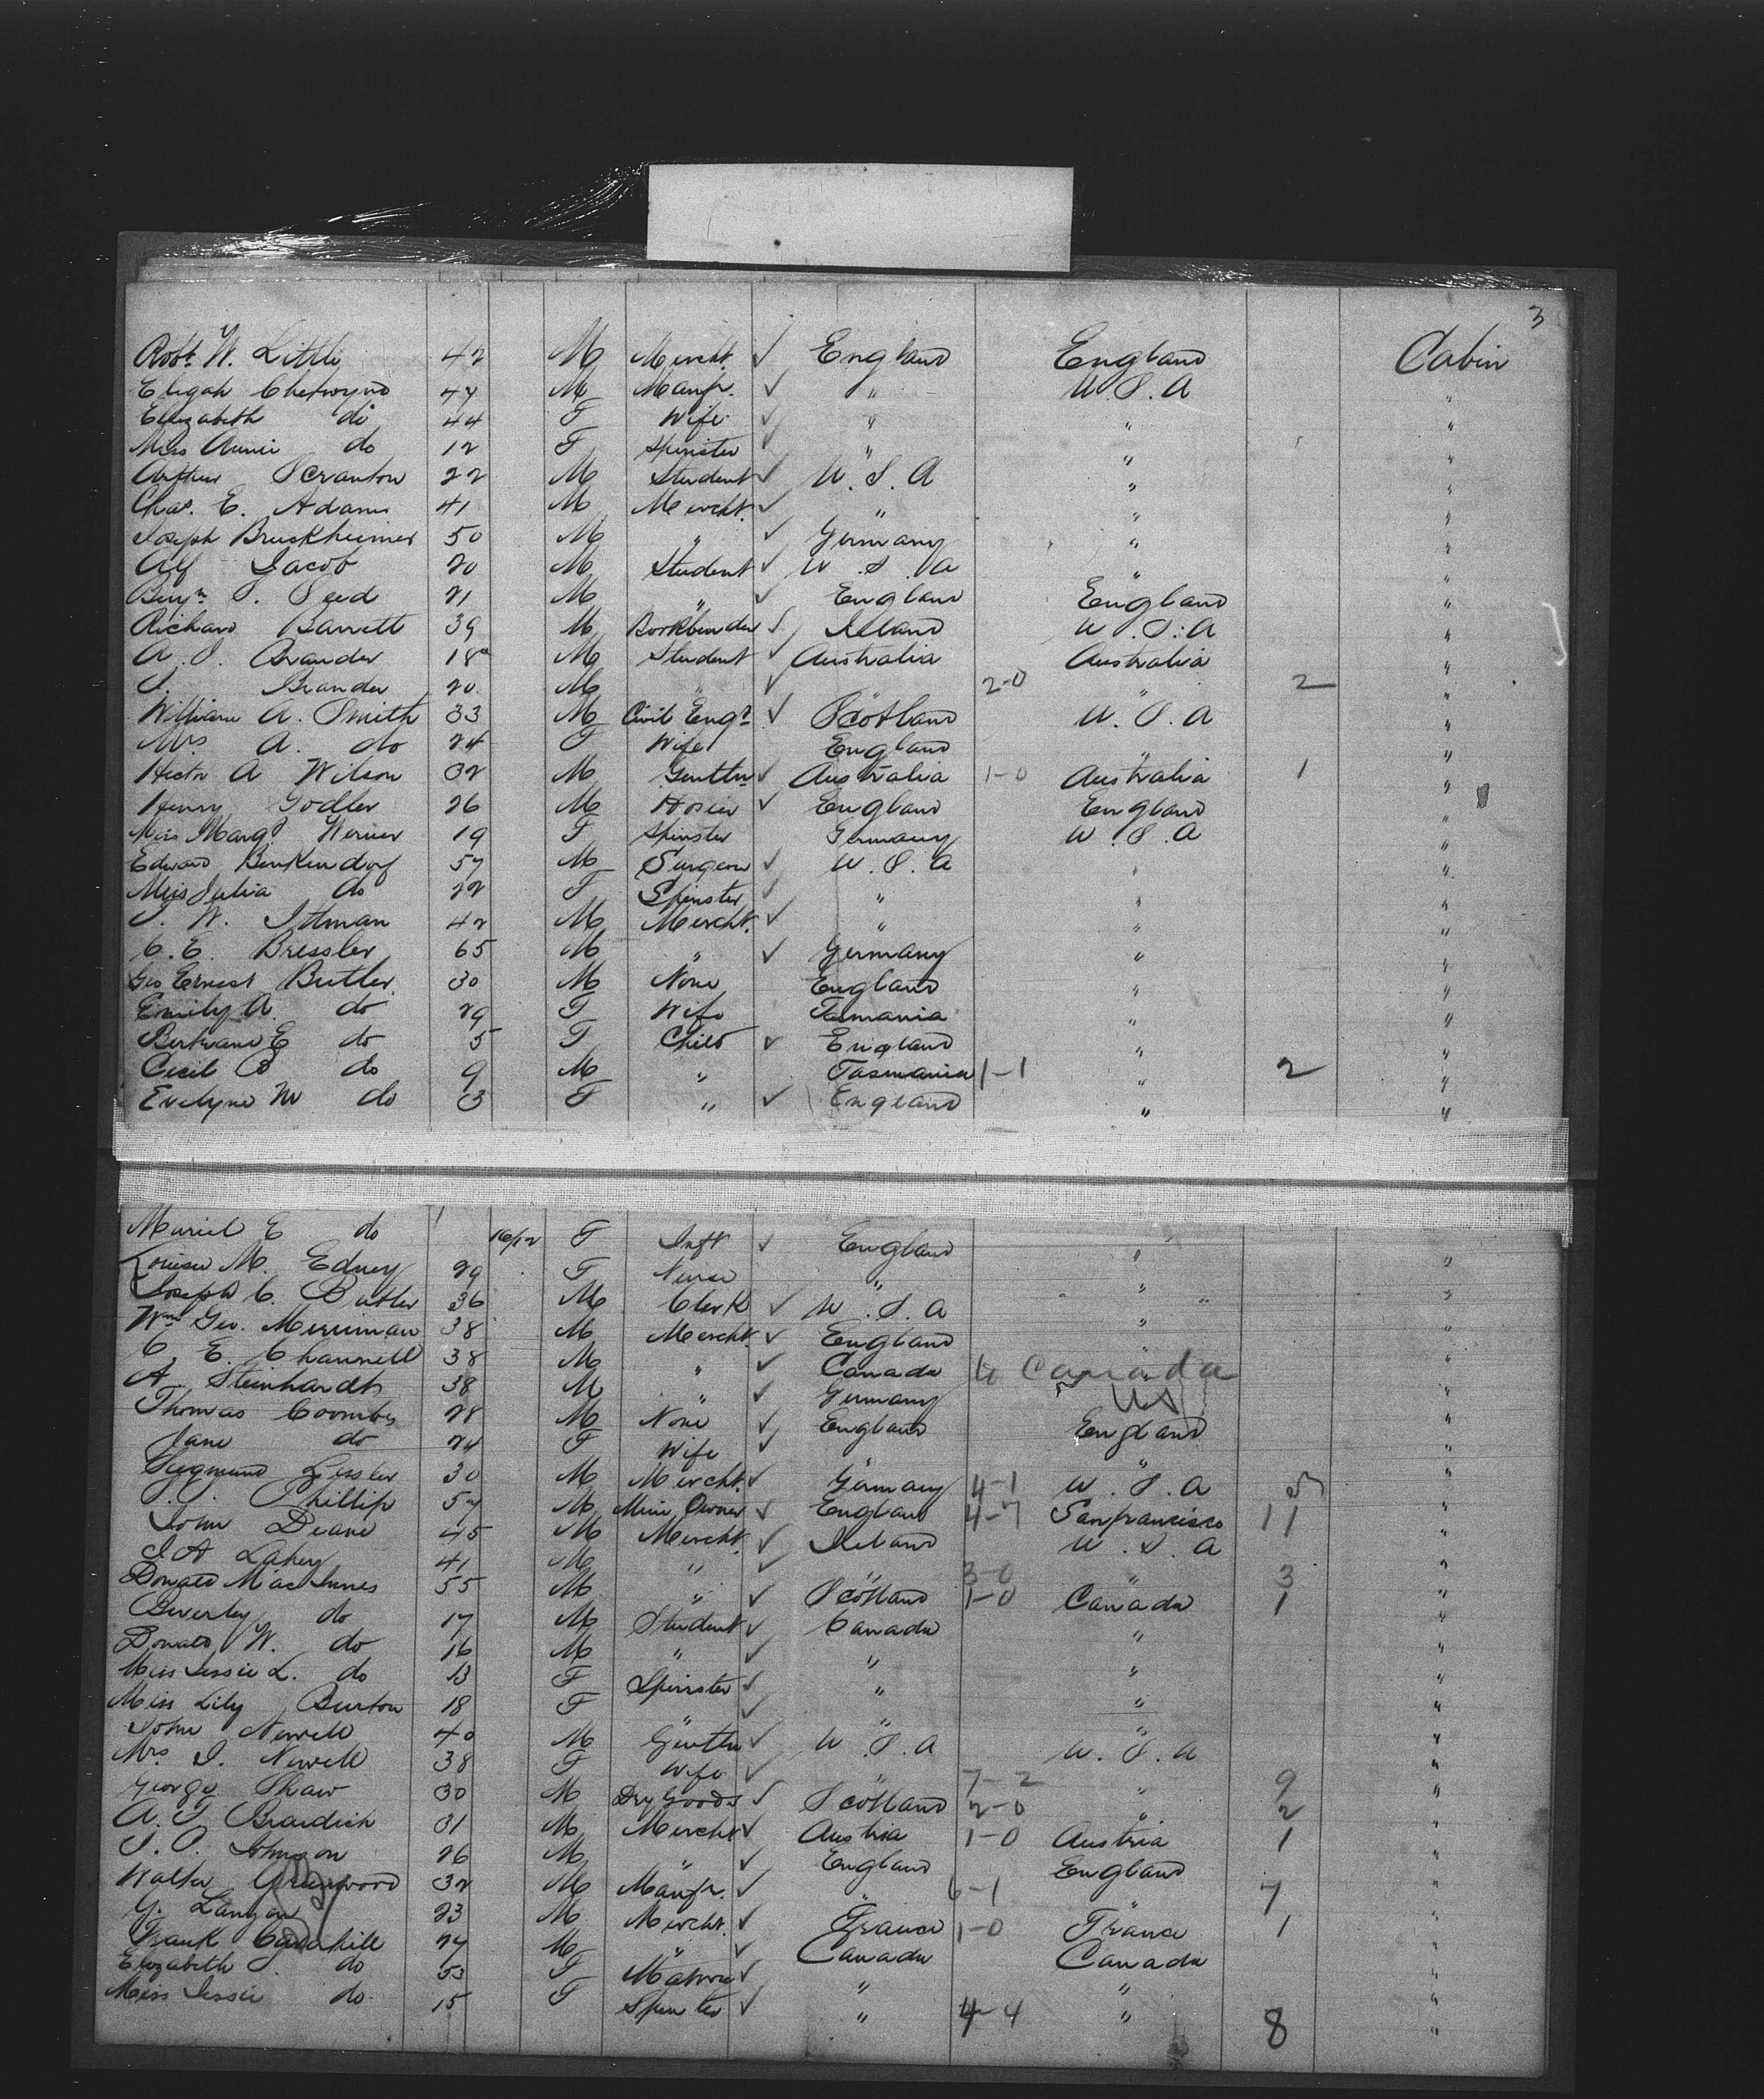 3
Robt. W. Little 42 M Mercht. ✓ England England Cabin
Elijah Chetwynd 47 M Manfr. ✓ " U.S.A "
Elizabeth do 44 F Wife ✓ " " "
Miss Annie do 12 F Spinster ✓ " " "
Arthur Scranton 22 M Student ✓ U.S.A " "
Chas. E. Adams 41 M Mercht. ✓ " " "
Joseph Bruckheimer 50 M " ✓ Germany " "
Alf Jacob 20 M Student ✓ U.S.A " "
Benjn. S. Seed 21 M " ✓ England England "
Richard Barrett 39 M Bookbinder ✓ Ireland U.S.A "
A. S. Brander 18 M Student ✓ Australia Australia "
Brander 20 M " ✓ 2-0 " 2 "
William A. Smith 33 M Civil Engr. ✓ Scotland U.S.A "
Mrs. A. do 24 F Wife England " "
Hector A Wilson 32 M Gentln ✓ Australia 1-0 Australia 1 "
Henry Godler 26 M Hosier ✓ England England "
Miss Margt. Werner 19 F Spinster Germany U.S.A "
Edward Benkendorf 57 M Surgeon ✓ U.S.A " "
Miss Julia do 22 F Spinster ✓ " " "
J. W. Ittman 42 M Mercht. ✓ " " "
C. E. Bressler 65 M " ✓ Germany " "
Geo Ernest Butler 30 M None England " "
Emily A. do 29 F Wife Tasmania " "
Bertrand E do 5 F Child ✓ England " "
Cecil B do 9 M " Tasmania 1-1 " 2 "
Evelyne M do 3 F " ✓ England " "
Muriel E do 10/12 F Inft ✓ England " "
Louisa M. Edney 29 F Nurse " " "
Joseph C. Butler 36 M Clerk ✓ U.S.A " "
Wm. Geo. Merriman 38 M Mercht. ✓ England " "
C. E. Channell 38 M " ✓ Canada Canada "
A Steinhardt 38 M " ✓ Germany US "
Thomas Coombes 28 M None ✓ England England "
Jane do 24 F Wife ✓ " "
Sygmund Lissler 30 M Mercht. ✓ Germany 4-1 U.S.A 5 "
Phillip 57 M Mine Owner ✓ England 4-7 Sanfrancisco 11 "
John Deane 45 M Mercht. ✓ Ireland U.S.A "
J. A Lahey 41 M " ✓ " 3-0 " 3 "
Donald MacInnes 55 M " ✓ Scotland 1-0 Canada 1 "
Beverley do 17 M Student ✓ Canada " "
Donald W. do 16 M " ✓ " " "
Miss Jessie L. do 13 F Spinster ✓ " " "
Miss Lily Burton 18 F " ✓ " " "
John Newell 40 M Gentln ✓ U.S.A U.S.A "
Mrs J. Newell 38 F Wife ✓ " 7-2 " 9 "
George Shaw 30 M Dry Goods ✓ Scotland 2-0 " 2 "
A. T. Bradich 31 M Mercht ✓ Austria 1-0 Austria 1 "
J. P. Johnson 26 M " ✓ England England "
Walter Greenwood 32 M Manfr. ✓ " 6-1 " 7 "
G. Langon 23 M Mercht. ✓ France 1-0 France 1 "
Frank 27 M " ✓ Canada Canada "
Elizabeth do 53 F Matron ✓ " " "
Miss Jessie do 15 F Spinster ✓ " 4-4 " 8 "